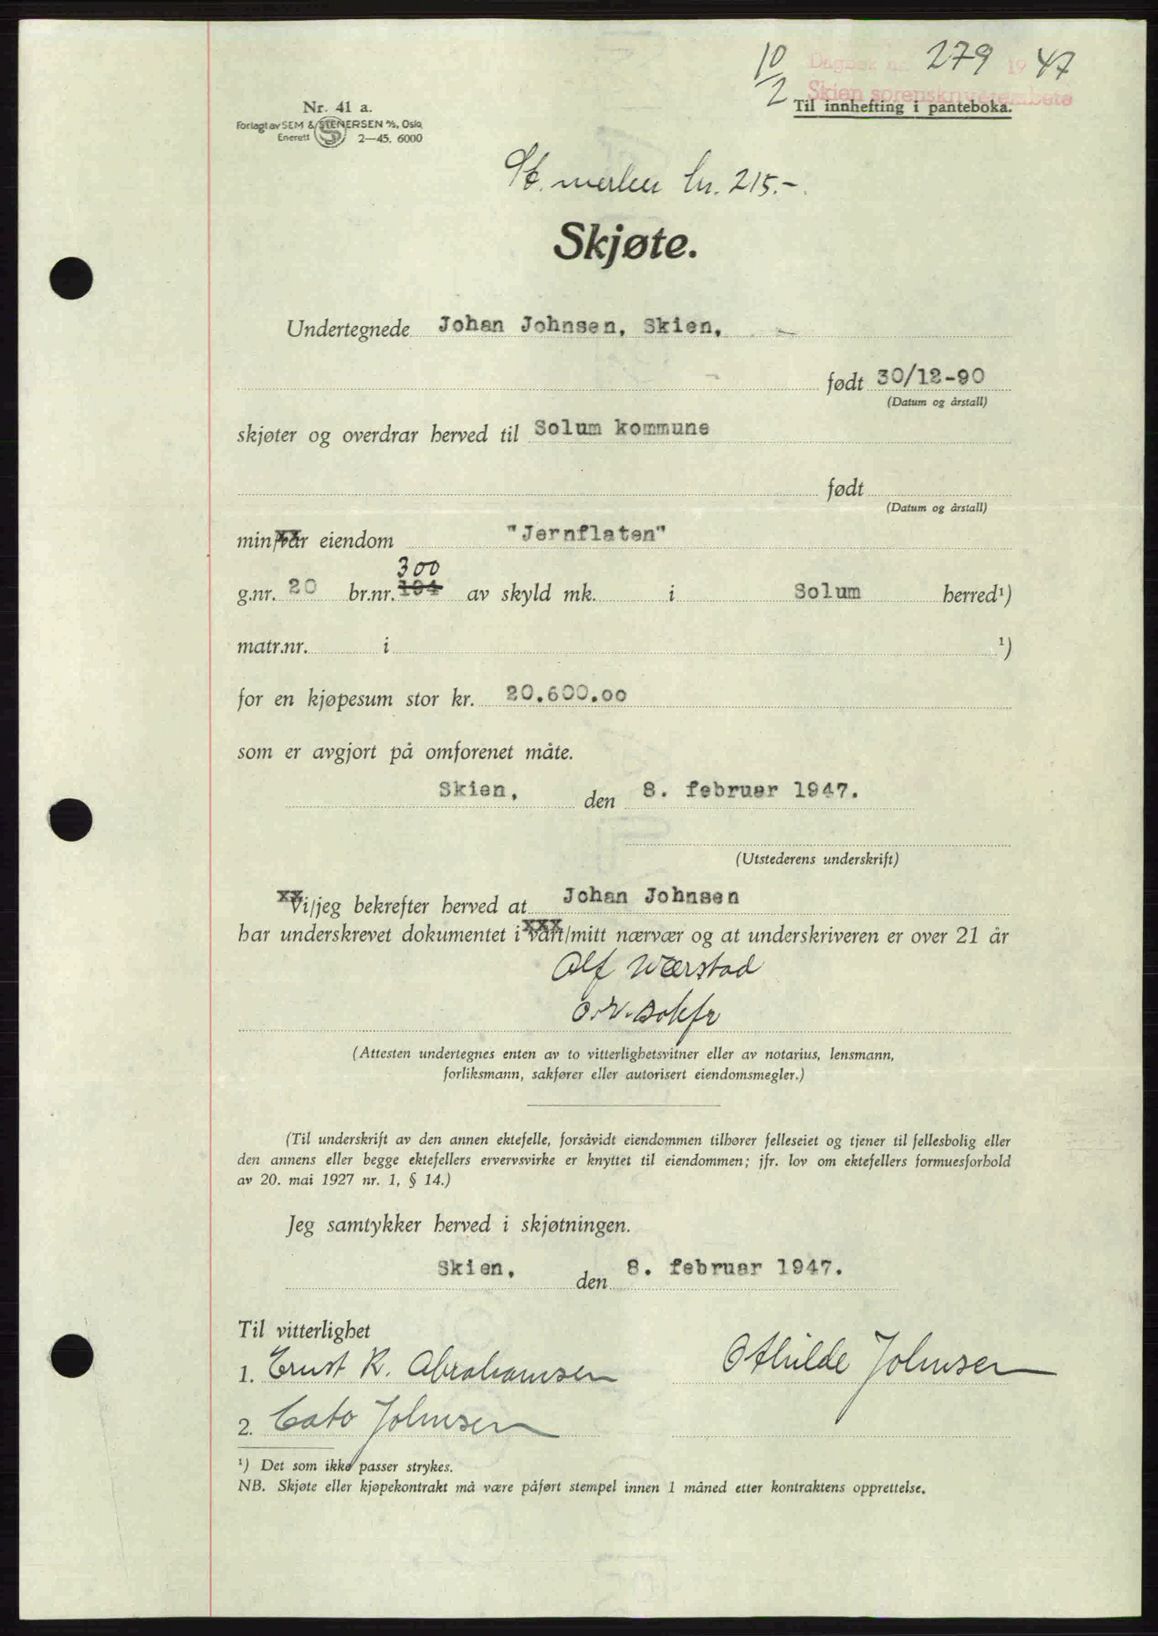 10/2 Dagbok nr. 279 1947
Skien sorenskriverembete
Til innhefting i panteboka.
Nr. 41 a.
Forlagt av SEM & STENERSEN A/S, Oslo
Enerett 2—45. 6000
St. merker kr. 215.-
Skjøte.
Undertegnede Johan Johnsen, Skien,
født 30/12-90
(Datum og årstall)
skjøter og overdrar herved til Solum kommune
født
(Datum og årstall)
min/vår eiendom "Jernflaten"
300
g.nr. 20 br.nr. 194 av skyld mk. i Solum herred¹)
matr.nr. i ¹)
for en kjøpesum stor kr. 20.600.00
som er avgjort på omforenet måte.
Skien, den 8. februar 1947.
(Utstederens underskrift)
Vi/jeg bekrefter herved at Johan Johnsen
har underskrevet dokumentet i vårt/mitt nærvær og at underskriveren er over 21 år
Alf Wærstad
(Attesten undertegnes enten av to vitterlighetsvitner eller av notarius, lensmann,
forliksmann, sakfører eller autorisert eiendomsmegler.)
(Til underskrift av den annen ektefelle, forsåvidt eiendommen tilhører felleseiet og tjener til fellesbolig eller
den annens eller begge ektefellers ervervsvirke er knyttet til eiendommen; jfr. lov om ektefellers formuesforhold
av 20. mai 1927 nr. 1, § 14.)
Jeg samtykker herved i skjøtningen.
Skien, den 8. februar 1947.
Til vitterlighet
1. Ernst R. Abrahamsen Othilde Johnsen
2. Cato Johnsen
¹) Det som ikke passer strykes.
NB. Skjøte eller kjøpekontrakt må være påført stempel innen 1 måned etter kontraktens opprettelse.